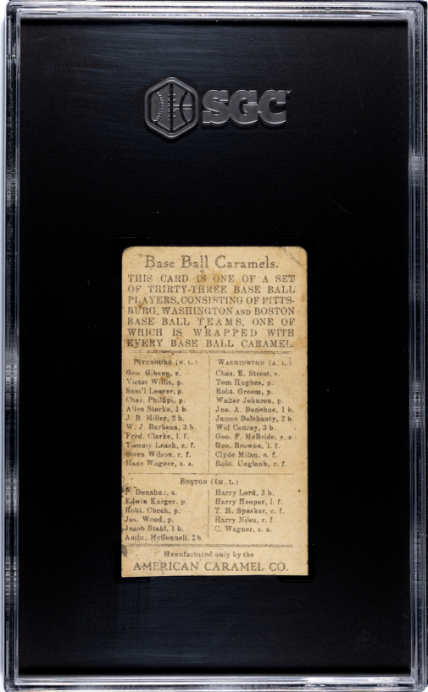 SGC
Base Ball Caramels.
THIS CARD IS ONE OF A SET
OF THIRTY-THREE BASE BALL
PLAYERS, CONSISTING OF PITTS-
BURG, WASHINGTON AND BOSTON
BASE BALL TEAMS, ONE OF
WHICH IS WRAPPED WITH
EVERY BASE BALL CARAMEL
PITTSBURG (N. L.)
Geo. Gibson, c.
Victor Willis, p.
Sam'l Leever, p.
Chas. Phillipi, p.
Allen Storke, 1 b.
J. B. Miller, 2 b.
W. J. Barbeau, 3 b.
Fred. Clarke, l. f.
Tommy Leach, c. f.
Owen Wilson, r. f.
Hans Wagner, s. s.
WASHINGTON (A. L.)
Chas. E. Street, c.
Tom Hughes, p.
Robt. Groom, p.
Walter Johnson, p.
Joo. A. Donohue, 1 b.
James Delehanty, 2 b.
Wid Conroy, 3 b.
Geo. F. McBride, s. s.
Geo. Browne, l. f.
Clyde Milan, c. f.
Robt. Unglaub, r. f.
BOSTON (AM. L.)
Donahue, c.
Edwin Karger, p.
Robt. Chech, p.
Jos. Wood, p.
Jacob Stahl, 1 b.
Ambr. McConnell, 2 b.
Harry Lord, 3 b.
Harry Hooper, l. f.
T. R. Speaker, c. f.
Harry Niles, r. f.
C. Wagner, s. s.
Manufactured only by the
AMERICAN CARAMEL CO.